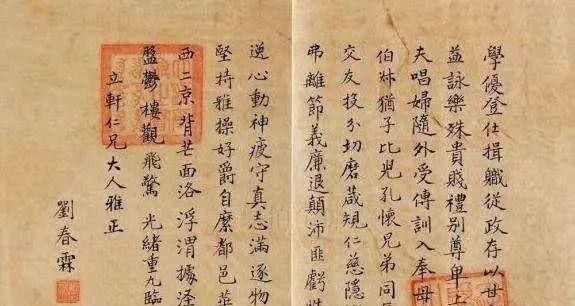 學優登仕攝職從政存以甘
益詠樂殊貴賤禮別尊卑
夫唱婦隨外受傅訓入奉母
伯叔猶子比兒孔懷兄弟同
交友投分切磨箴規仁慈隱
弗離節義廉退顛沛匪虧性
逸心動神疲守真志滿逐物
堅持雅操好爵自縻都邑華
西二京背芒面洛浮渭據涇
盤鬱樓觀飛驚 光緒重九臨
立軒仁兄大人雅正
劉春霖